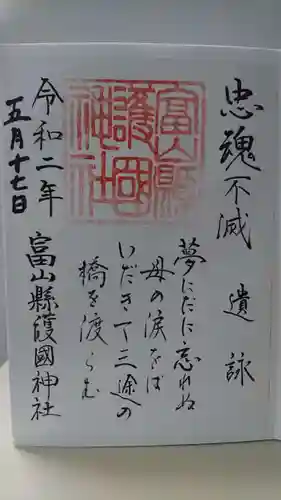 忠魂不滅 遺詠
夢にだに忘れぬ
母の涙をば
いだきて三途の
橋を渡らむ
富山縣護國神社
令和二年
五月十七日
富山縣護國神社